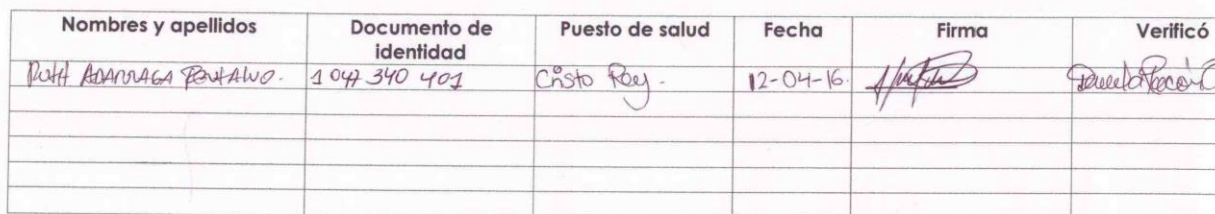 Nombres y apellidos Documento de identidad Puesto de salud Fecha Firma Verificó
Ruth ADARRAGA 1 047 340 401 Cristo Rey. 12-04-16.